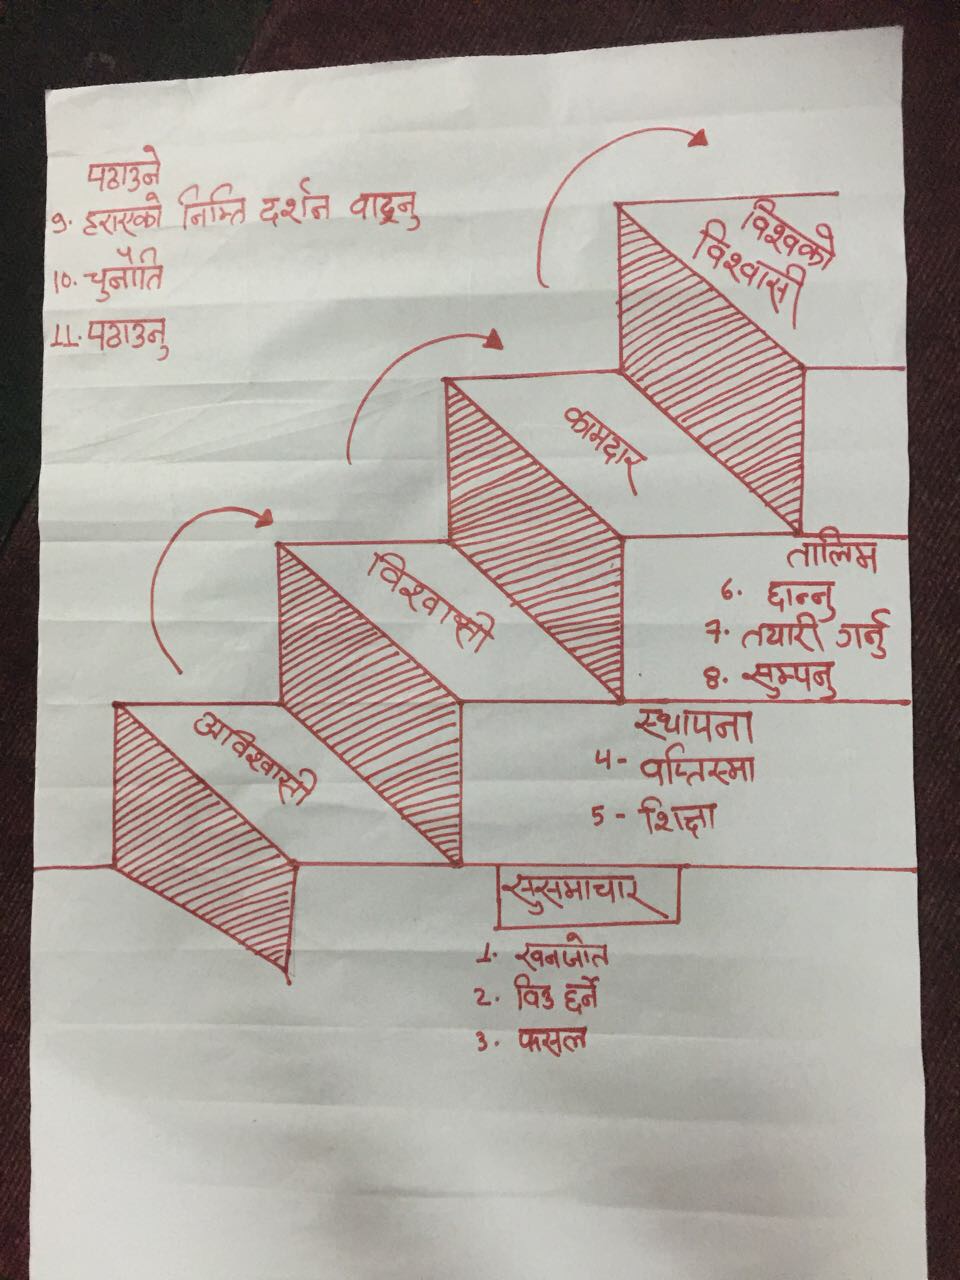 पठाउने
9. हराएको निम्ति दर्शन बाड्नु
10. चुनौति
11. पठाउनु
विश्वको
विश्वासी
कामदार
विश्वासी
अविश्वासी
तालिम
6. छान्नु
7. तयारी गर्नु
8. सुम्पनु
स्थापना
4- वप्तिस्मा
5- शिक्षा
सुसमाचार
1. खनजोत
2. विउ छर्ने
3. फसल